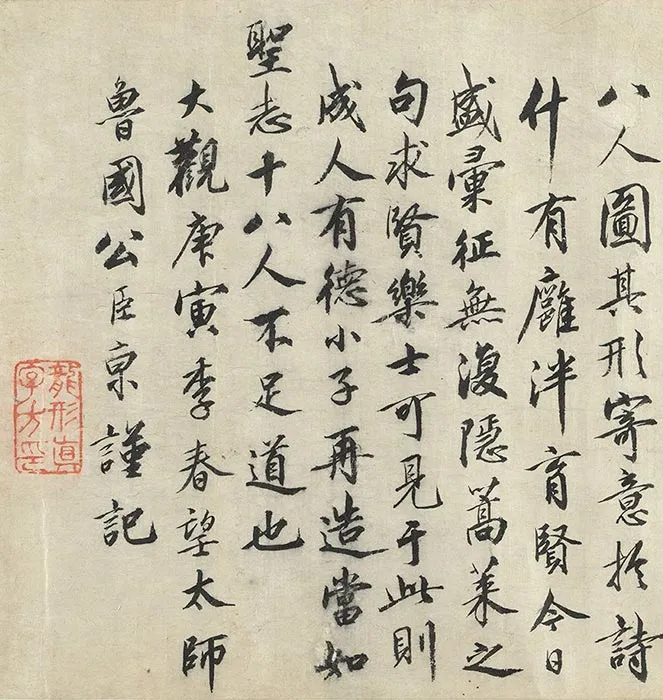 八人圖其形寄意於詩
什有廱泮育賢今日
盛彙征無復隱蒿萊之
句求賢樂士可見于此則
成人有德小子再造當如
聖志十八人不足道也
大觀庚寅季春望太師
魯國公臣京謹記